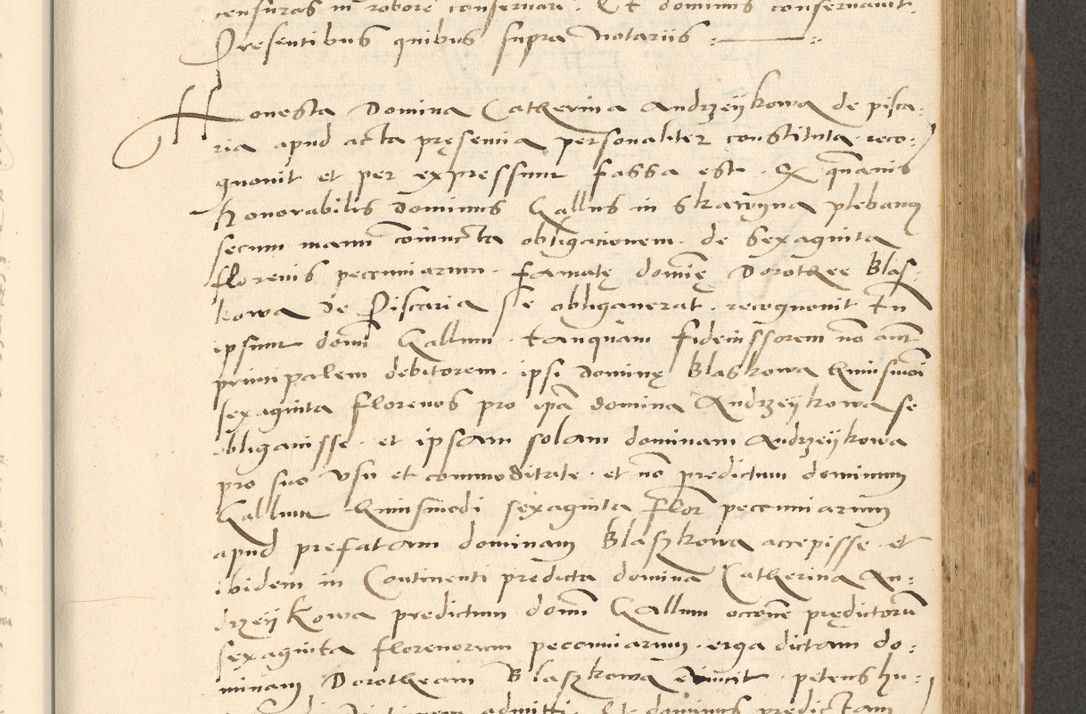 censuras in robore conservari. Et dominus conservavit.
Presentibus quibus supra Notariis
Honesta Domina Catherina Andrzeÿkowa de pisca-
ria apud acta pręsencia personaliter constituta reco-
gnovit et per expressum fassa est. Q quāvis
honorabilis dominus Gallus in Skawyna plebanus
secum manu coiuncta obligacionem de sexaginta
florenis pecuniarum famatę domię Dorothee Blas-
kowa de Piscaria se obligaverat. recognovit tn
ipsum domī Gallum tanquam fideiussorem nō autē
principalem debitorem. ipsi dominę Blaskowa huiusmōi
sexaginta florenos pro ipā domina Andrzeÿkowa se
obligavisse. et ipsam solam dominam Andrzeÿkowa
pro suo usu et commoditate. et nō predictum dominum
Gallum huiusmodi sexaginta flor pecuniarum
apud prefatam dominam Blaszkowa accepisse. et
ibidem in Continenti predicta domina Catherina An-
drzeÿkowa predictum domī Gallum occōne prędictorū
sexaginta florenorum pecuniarum erga dictam do-
minam Dorotheam Blaszkowa evincit. petens hu-
admitti. Et dominus predictam